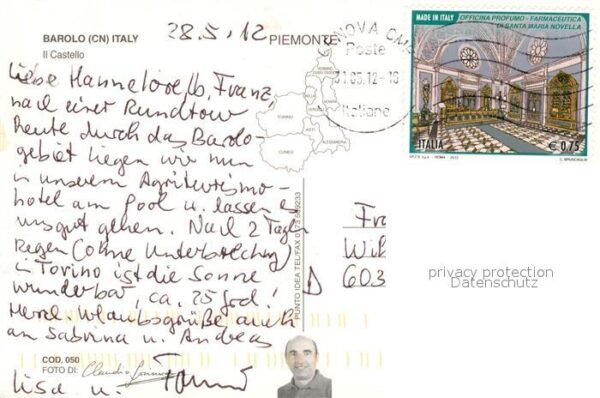 BAROLO (CN) ITALY
Il Castello
28.5.12
PIEMONTE
Liebe Hannelore, Franz,
nach einer Rundtour
heute durch das Barolo-
gebiet liegen wir nun
in unserem Agriturismo-
hotel am Pool u. lassen es
uns gut gehen. Nach 2 Tagen
Regen (ohne Unterbrechung)
in Torino ist die Sonne
wunderbar, ca. 25 Grad!
Herzl. Urlaubsgrüße auch
an Sabrina u. Andreas
Lisa u.
COD. 050
FOTO DI:
PUNTO IDEA TEL/FAX
TORINO
ASTI
CUNEO
ALESSANDRIA
GENOVA
Poste
31.05.12-16
Italiane
MADE IN ITALY
OFFICINA PROFUMO - FARMACEUTICA
DI SANTA MARIA NOVELLA
ITALIA
€ 0,75
Fra
Wil
D 603
privacy protection
Datenschutz